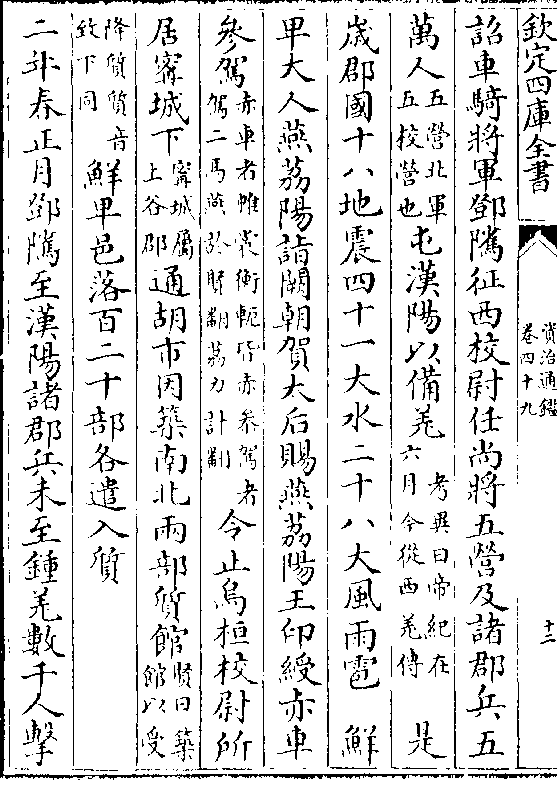 欽定四庫全書
資治通鑑
卷四十九
十二
詔車騎將軍鄧隲征西校尉任尚將五營及諸郡兵五
萬人五營北軍五校營也屯漢陽以備羌考異曰帝紀在六月今從西羌傳是
歲郡國十八地震四十一大水二十八大風雨雹 鮮
卑大人燕荔陽詣闕朝賀太后賜燕荔陽王印綬赤車
參駕赤車者帷裳衡軛皆赤參駕者駕二馬燕於賢翻荔力計翻令止烏桓校尉所
居寗城下寗城屬上谷郡通胡市因築南北兩部質館賢曰築館以受
降質質音致下同鮮卑邑落百二十部各遣入質
二年春正月鄧隲至漢陽諸郡兵未至鍾羌數千人擊